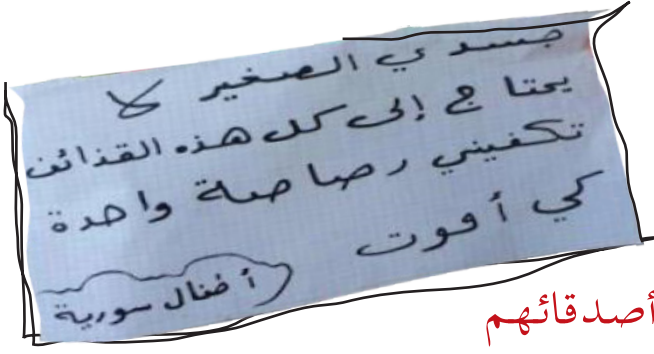 جسدي الصغير لا
يحتاج إلى كل هذه القذائف
تكفيني رصاصة واحدة
كي أموت
أطفال سورية
أصدقائهم